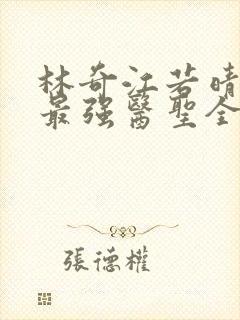 林奇江若晴
最强醫聖全
張德權